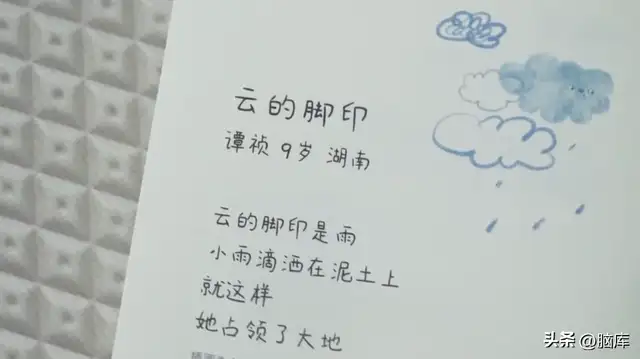 云的脚印
谭祯 9岁 湖南
云的脚印是雨
小雨滴洒在泥土上
就这样
她占领了大地
头条 @脑库